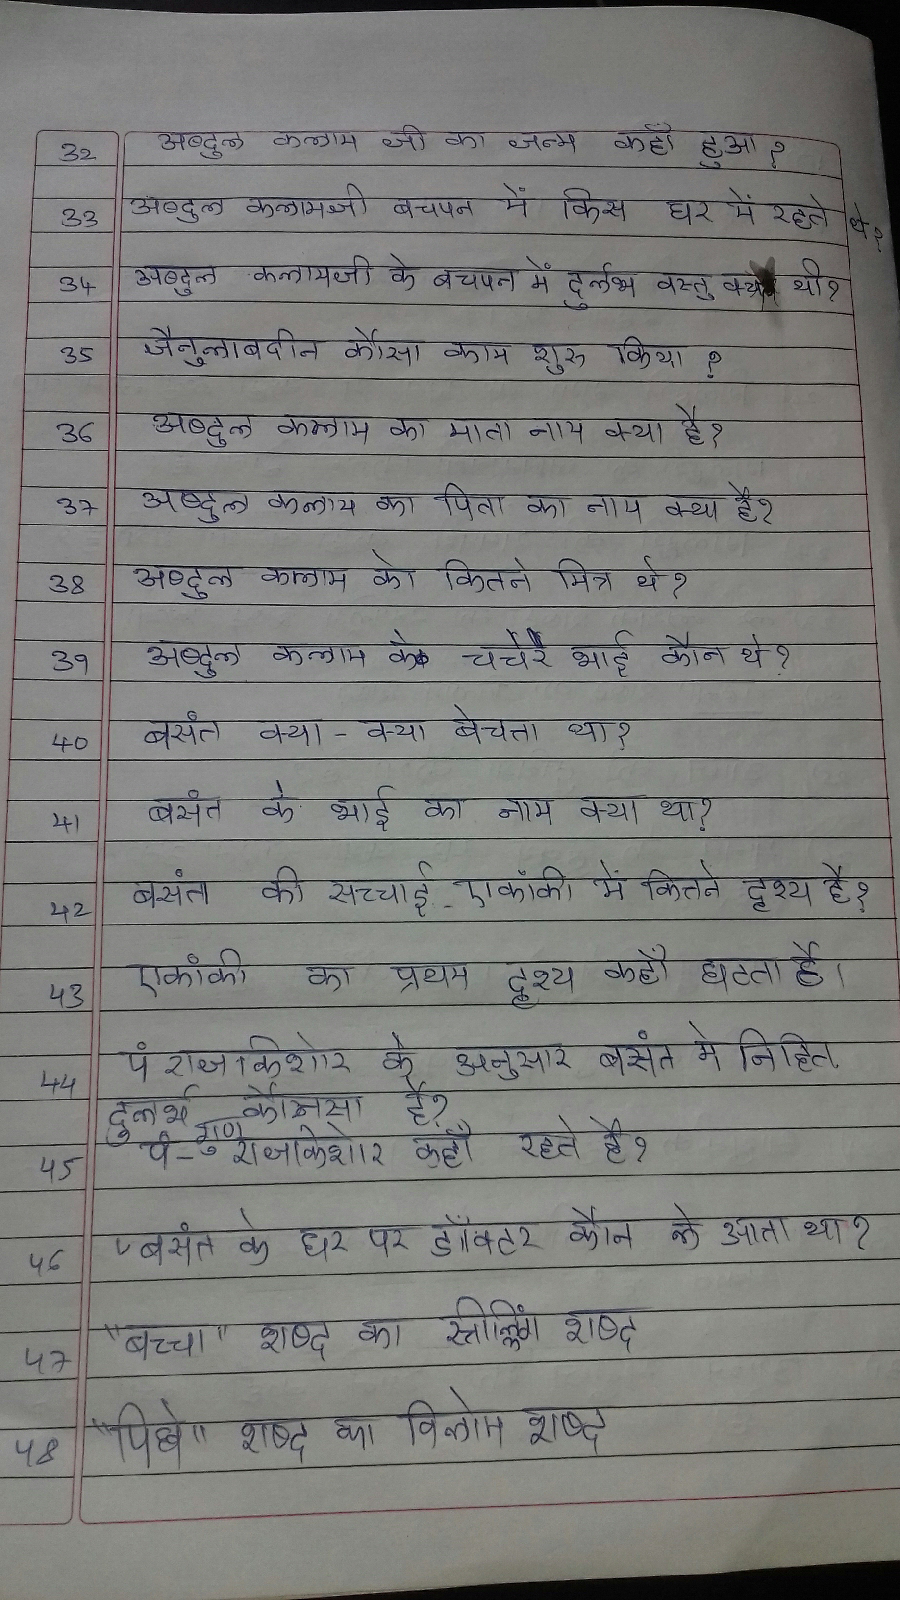 32 अब्दुल कलाम जी का जन्म कहाँ हुआ ?
33 अब्दुल कलामजी बचपन में किस घर में रहते थे?
34 अब्दुल कलामजी के बचपन में दुर्लभ वस्तु क्या थी?
35 जैनुलाबदीन कौसा काम शुरु किया ?
36 अब्दुल कलाम का माता नाम क्या है?
37 अब्दुल कलाम का पिता का नाम क्या है?
38 अब्दुल कलाम को कितने मित्र थे?
39 अब्दुल कलाम के चचेरे भाई कौन थे?
40 बसंत क्या - क्या बेचता था?
41 बसंत के भाई का नाम क्या था?
42 बसंत की सच्चाई - एकांकी में कितने दृश्य है?
43 एकांकी का प्रथम दृश्य कहाँ घटता है।
44 पं राजकिशोर के अनुसार बसंत मे निहित
दुलर्भ गुण कौनसा है?
45 पं - राजकिशोर कहाँ रहते है?
46 बसंत के घर पर डॉक्टर कौन ले आता था?
47 "बच्चा" शब्द का स्त्रीलिंग शब्द
48 "पिछे" शब्द का विलोम शब्द